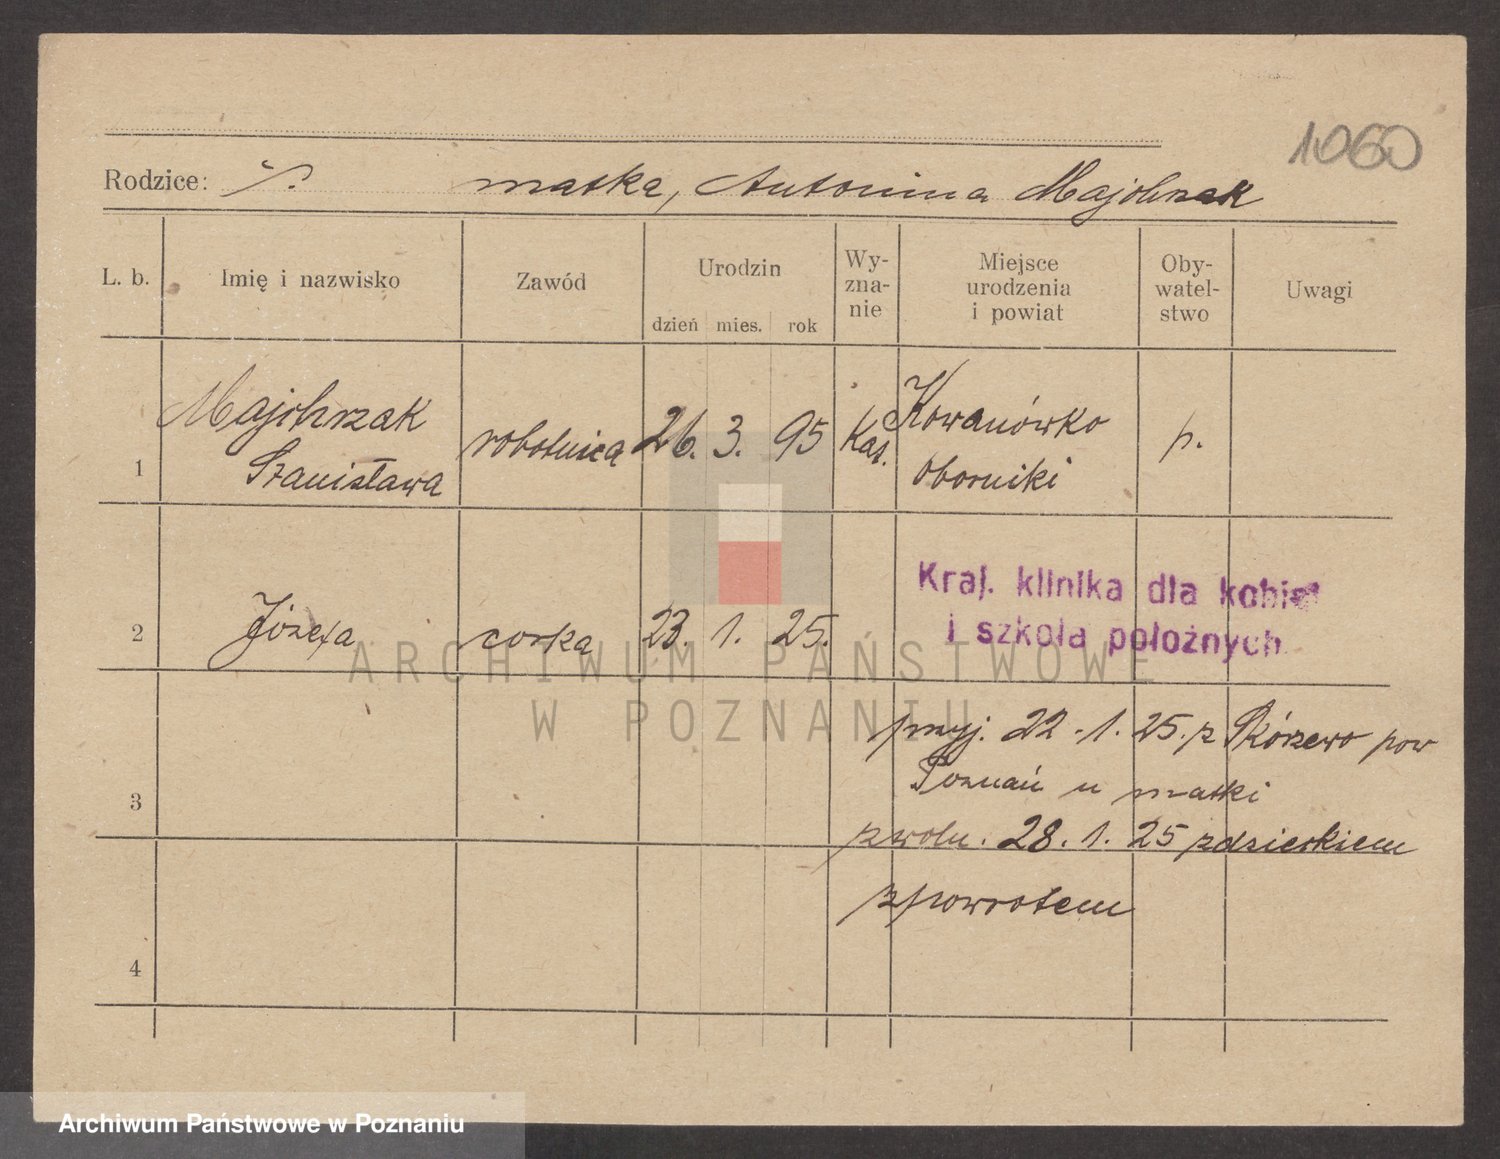 1060
Rodzice: ·/. matka, Antonina Majchrzak
L. b. Imię i nazwisko Zawód Urodzin dzień mies. rok Wy-zna-nie Miejsce urodzenia i powiat Oby-watel-stwo Uwagi
1 Majchrzak Stanisława robotnica 26. 3. 95 Kat. Kowanówko Oborniki p.
Kraj. klinika dla kobiet
i szkoła położnych
2 Józefa corka 23. 1. 25.
ARCHIWUM PAŃSTWOWE
W POZNANIU
przyj. 22.1.25. z Skórzewo pow
Poznań u matki
3
zwoln. 28.1.25 z dzieckiem
z powrotem
4
Archiwum Państwowe w Poznaniu